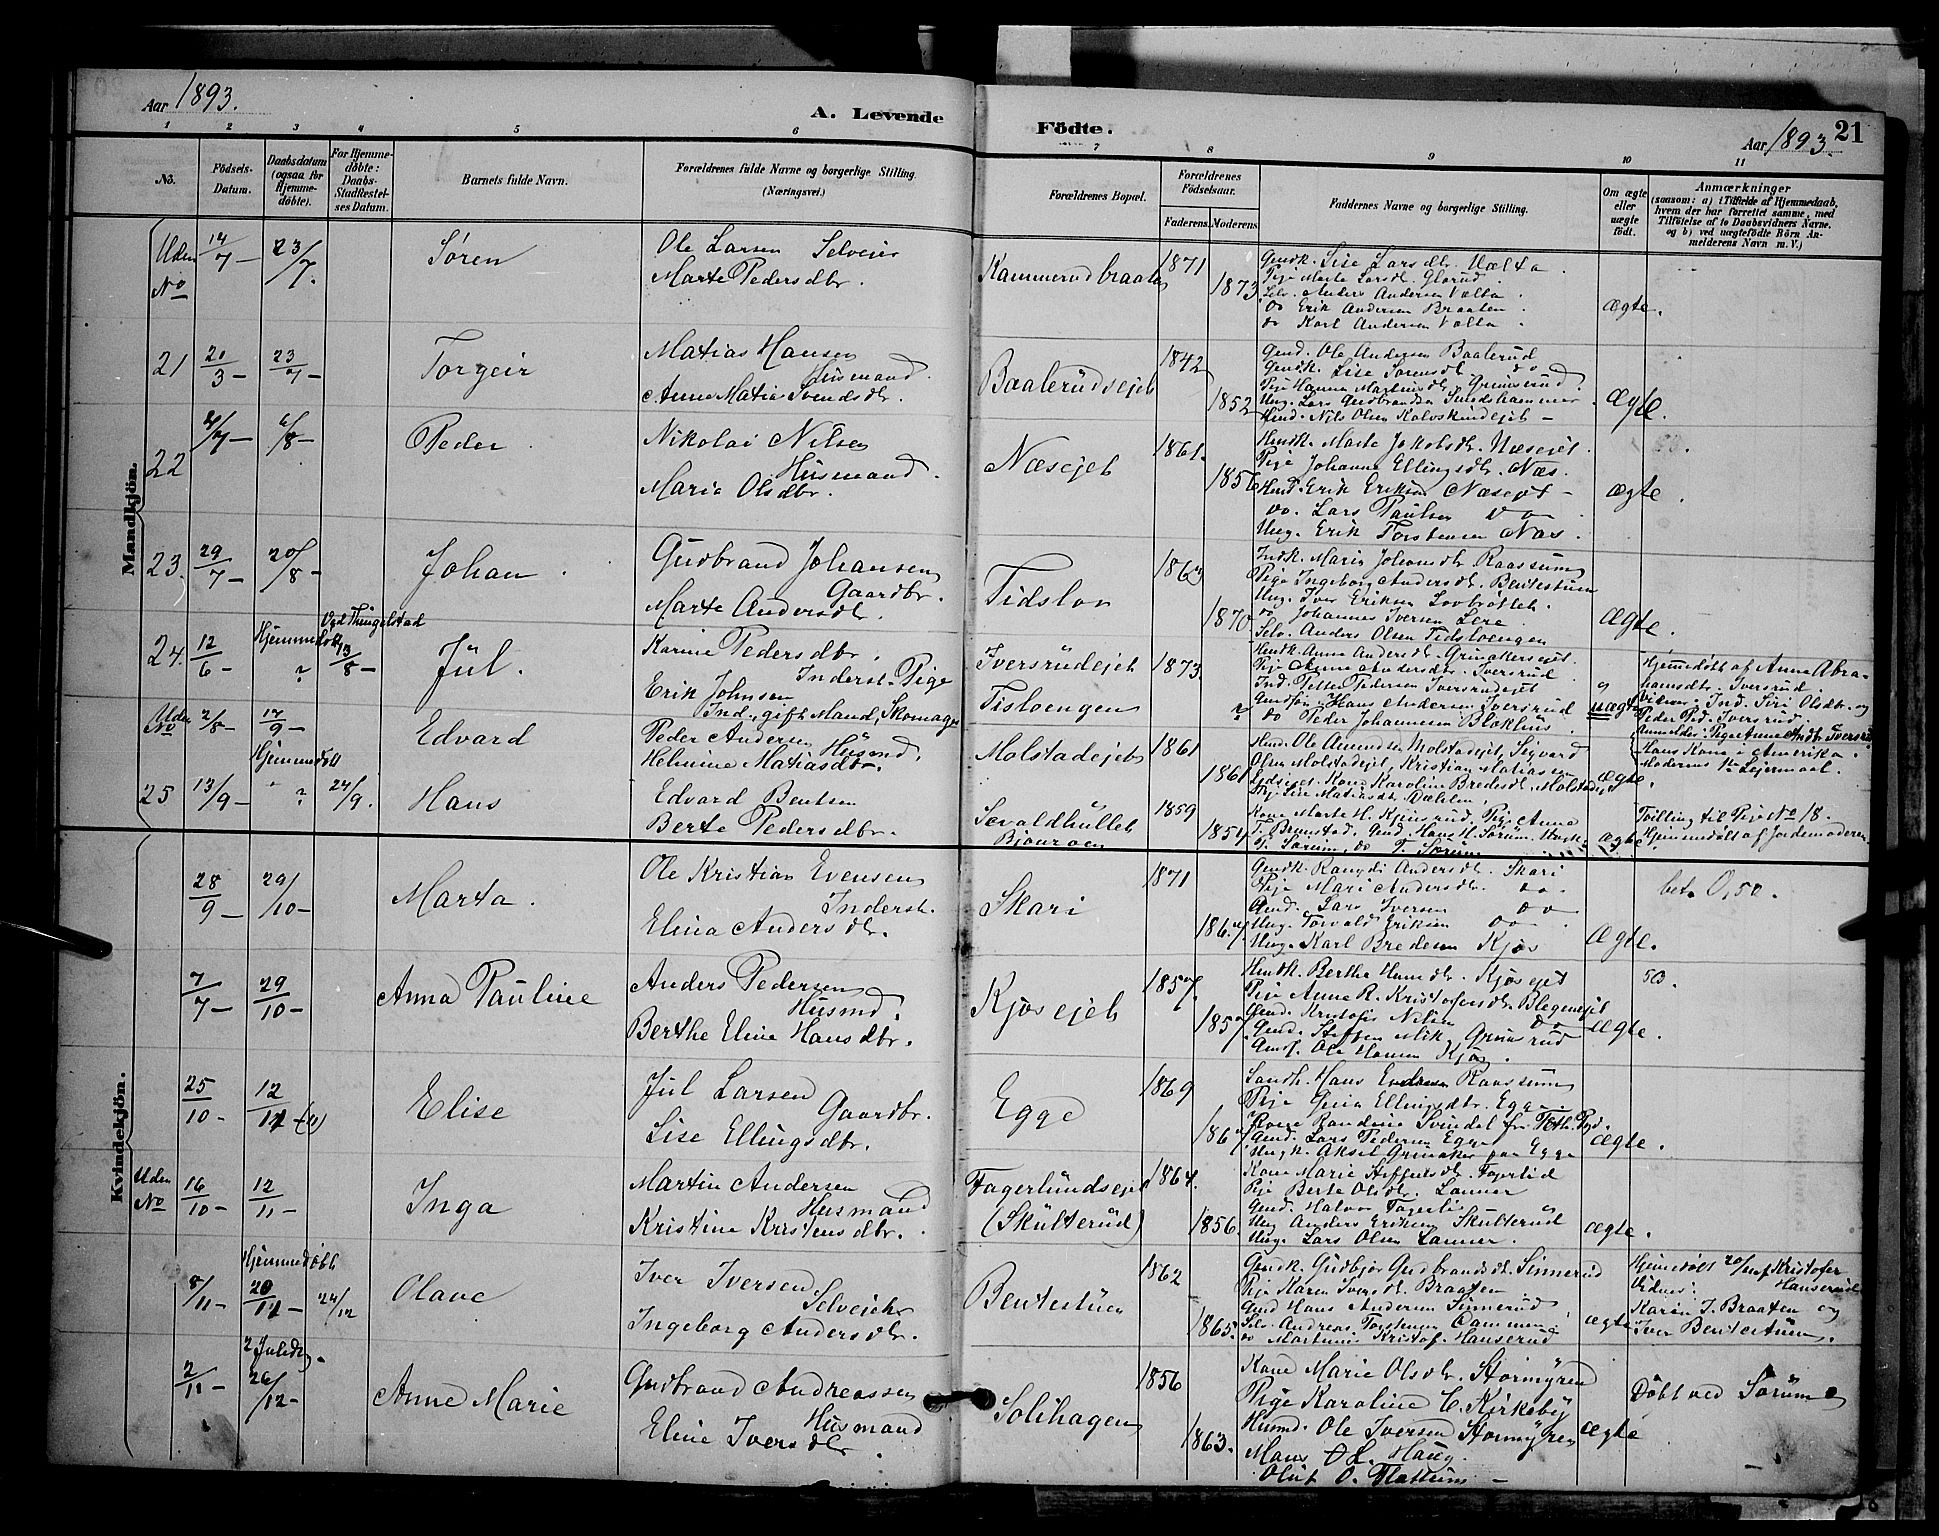 Aar 1893.
A. Levende
Födte.
Aar 1893.
21
1 2 3 4 5 6 7 8 9 10 11
No.
Födsels-
Datum.
Daabsdatum
(ogsaa for
Hjemme-
döbte).
For Hjemme-
döbte:
Daabs-
Stadfæstel-
ses Datum.
Barnets fulde Navn.
Forældrenes fulde Navne og borgerlige Stilling.
(Næringsvei.)
Forældrenes Bopæl.
Forældrenes
Födselsaar.
Faderens.
Moderens.
Faddernes Navne og borgerlige Stilling.
Om ægte
eller
uægte
født.
Anmærkninger
(saasom: a) i Tilfælde af Hjemmedaab,
hvem der har forrettet samme, med
Tilföielse af to Daabsvidners Navne,
og b) ved uægtefödte Börn An-
melderens Navn m. V.)
Mandkjön.
Uden No 14/7 - 23/7. Søren
Ole Larsen Selveier
Marte Pedersdtr.
1871
1873
Gmdk. Lise Larsdtr. Vælta
Pige Marte Larsdt. Glorud.
Selv. Anders Andersen Vælta
do Erik Andersen Braaten
do Karl Andersen Vælta
ægte.
21 20/3 - 23/7 - Torgeir
Matias Hansen
Husmand.
Anne Matia Svendsdtr.
Baalerudsejet
1842
1852
Gmd. Ole Andersen Baalerud
Gmdk. Lise Sørensdt. do
Pige Hanna Martinsdt. Grimsrud
Ung. Lars Gudbrandsen Smedshammer
Hmd. Nils Olsen Kalvskindejet -
Ægte.
22 6/8 - Peder
Nikolai Nilsen
Husmand.
Marie Olsdtr.
Næsejet
1861.
1856
Hmdk. Marte Jakobsdt. Næsejet
Pige Johanne Ellingsdt. Næs.
Hmd. Erik Eriksen Næsejet -
do. Lars Paulsen do
Ung. Erik Torstensen Næs.
ægte.
23. 29/7 - 20/8 - Johan.
Gudbrand Johansen
Gaardbr.
Marte Andersdt.
Tidslon
1870
Indk. Maria Johansdt. Raassum
Pige Ingeborg Andersdt. Bentestuen
Ung. Iver Eriksen
do Johannes Iversen Lere
Selv. Anders Olsen Tidsloengen
Ægte.
Ved Thingelstad
24. 12/6 - Hjemmedøbt ? 13/8 - Jül.
Karine Pedersdtr.
Inderst. Pige
Erik Johnsen
Ind., gift Mand, Skomager
Iversrudejet
Tisloengen
1873.
?
Hmdk. Anne Andersdt. Grinakersejet.
Pige Anne Andersdt. Iversrud
Ind. Petter Pedersen Iversrudejet
Gmdsøn Hans Andersen Iversrud
do Peder Johannesen Blokhus
uægte
Hjemmedøbt af Anne Abra-
hamsdt. Iversrud.
Vidner: Ind. Siri Olsdtr. og
Peder Ped. Iversrud.
Anmelder: Pige Anne Andtr. Iversrud
Hans Kone i Amerika.
Moderens 1ste Lejermaal.
Uden No 2/8 - 17/9 - Edvard
Peder Andersen Husmd.
Helmine Matiasdtr.
Molstadejet
1861
1861
Hmd. Ole Amundsen Molstadejet, Sigvard
Olsen Molstadejet, Kristian Matiasen
Kone Karoline Bredesdt. Molstadejet
Pige Lise Matiasdt. Dælilen
ægte
25 13/9 - Hjemmedøbt ? 24/9. Hans
Edvard Bentsen
Berte Pedersdtr.
1859
1854
Kone Marte H. Kjeisrud, Pige Anne
T. Brunstad. Gmd. Hans H. Sørum
T. Sørum, do T. Sørum
ægte
Tvilling til Pige No 18.
Hjemmedøbt af Jordemoderen.
Kvindekjön.
28/9 - 29/10 - Marta.
Ole Kristian Evensen
Inderst.
Elina Andersdtr.
Skari
1871
1867.
Gmdk. Rangdi Andersdt. Skari
Pige Mari Andersdtr. do.
Gmd. Lars Iversen do
Ung. Torvald Eriksen do.
Ung. Karl Bredesen Kjøs
Ægte.
bet. 0,50.
7/7 - 29/10 - Anna Pauline
Anders Pedersen
Husmd.
Berthe Eline Hansdtr.
Kjøsejet
1857.
1857
Hmdk. Berthe Hansdtr. Kjøsejet
Pige Anne R. Kristofersdt. Blegenejet
Gmd. Kristofer Nilsen do
Gmd. Steffen Mik. Grinsrud
Gmdf. Ole Hansen Kjøs.
ægte.
50.
25/10 - 12/11 - Elise
Jul Larsen
Gaardbr.
Lise Ellingsdtr.
Egge
1869
1867
Landh. Hans Raassum
Pige Gina Ellingsdtr. Egge.
Kone Randine Svindal fra Toth. Pgd.
Gmd. Lars Pedersen Egge
Ungk. Aksel Grinaker paa Egge
ægte.
Uden No 16/10 - 12/11 - Inga
Martin Andersen
Husmand
Kristine Kristensdtr.
Fagerlundsejet
(Skülterüd)
1864.
1856.
Kone Marie Steffensdtr. Fagerlid
Pige Berte Olsdtr. Lanner
Gmd. Halvor Fagerli
Ung Anders Eriksen Skülterüd
Ung. Lars Olsen Lanner.
ægte.
8/11 - Hjemmedøbt 20/11 - 24/12 Olave
Iver Iversen
Selveier
Ingeborg Andersdtr.
Bentestüen
1862
1865.
Gmdk. Gudbjør Gudbrandsdt. Sinnerud
Pige Karen Iversdt. Braaten
Gmd Hans Andersen Sinnerud
Selv. Andreas Torstensen Dammen
do Martinus Kristof. Hanserud
ægte
Hjemmedøbt 20/11 af Kristofer
Hanserud
Vidner:
Karen I. Braaten og
Iver Bentestuen.
2/11 - 2 Juledg. 26/12 - Anne Marie
Gudbrand Andreassen
Husmand
Eline Iversdtr.
Solihagen
1856
1863.
Kone Marie Olsdtr. Stormyren
Pige Karoline C. Kirkeby
Husmd. Ole Iversen Stormyren
Hans O. L. Haug.
Oluf O. Flattum -
ægte
Døbt ved Sørum